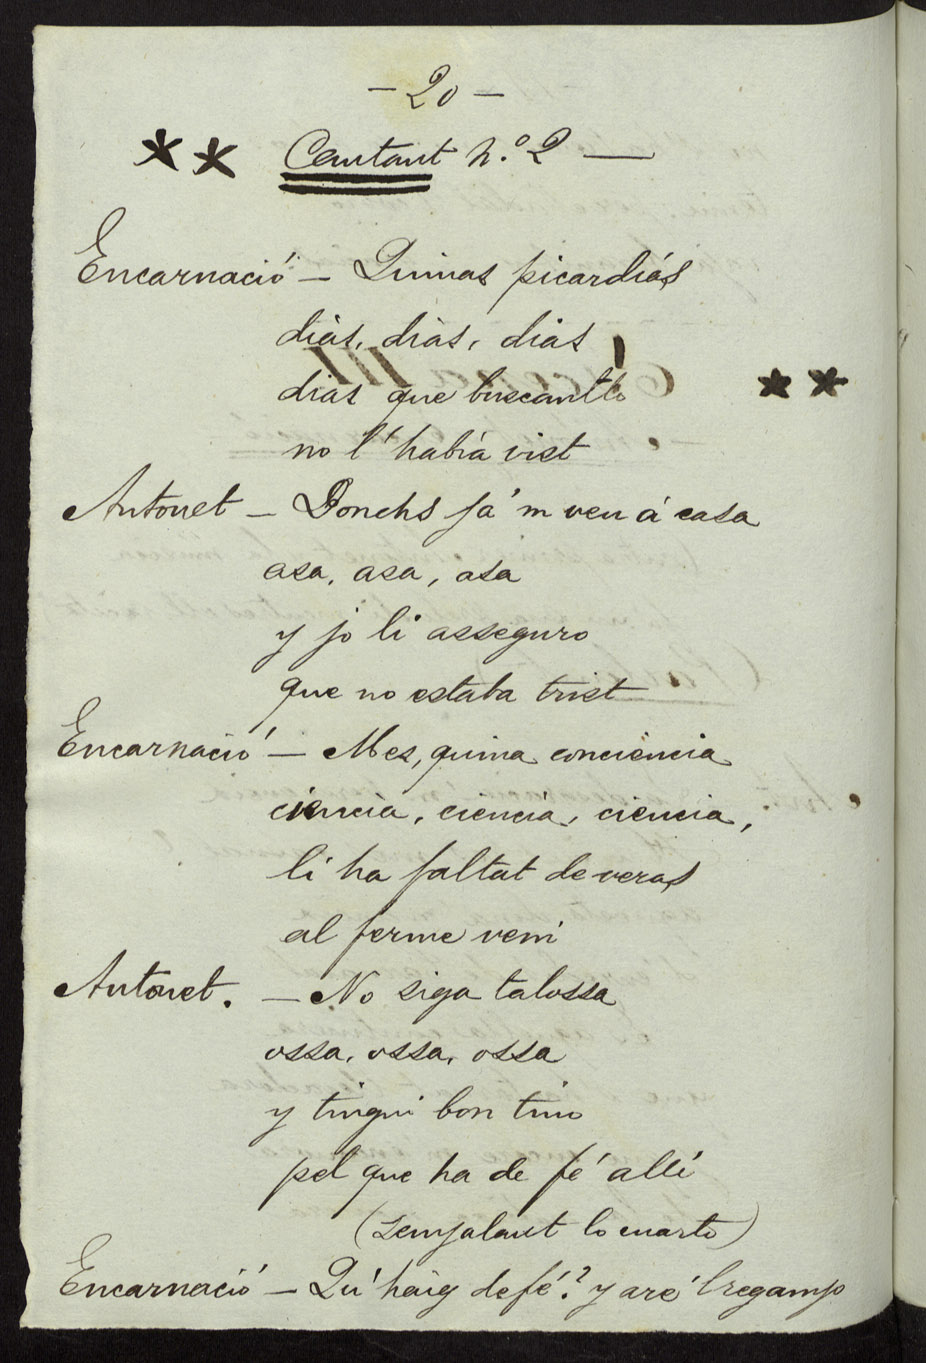 - 20 -
** Cantant n.º 2 —
Encarnació - Quinas picardiás
diás, diàs, dias
dias que buscantlo
no l'había vist
**
Antonet - Donchs ja'm veu á casa
asa, asa, asa
y jo li asseguro
que no estaba trist
Encarnació - Mes, quina conciència
ciencia, ciència, ciencia,
li ha faltat de veras
al ferme veni
Antonet. - No siga talossa
ossa, ossa, ossa
y tingui bon tino
pel que ha de fé allí
(Senyalant lo cuarto)
Encarnació - Qu'haig de fé? y aré'l